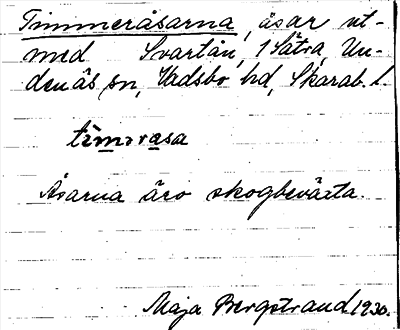 Timmeråsarna, åsar ut-
med Svartån, 1 Sätra, Un-
denäs sn, Vadsbo hd, Skarab. l.
timərasa
Åsarna äro skogbeväxta.
Maja Bergstrand 1930.